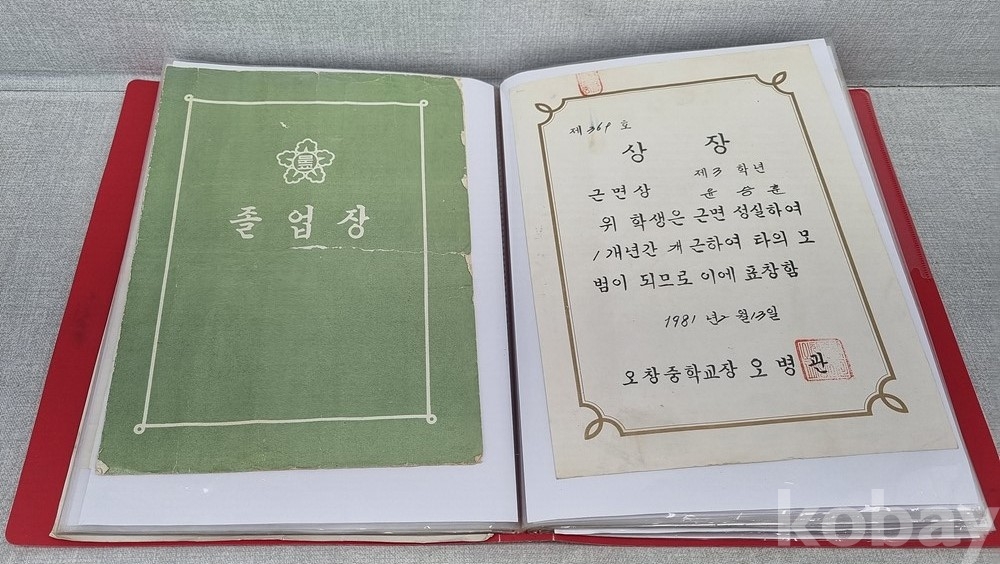 졸업장
제369호
상장
제3학년
근면상 윤승훈
위 학생은 근면 성실하여
1개년간 개근하여 타의 모
범이 되므로 이에 표창함
1981년 2월 13일
오창중학교장 오병관
kobay